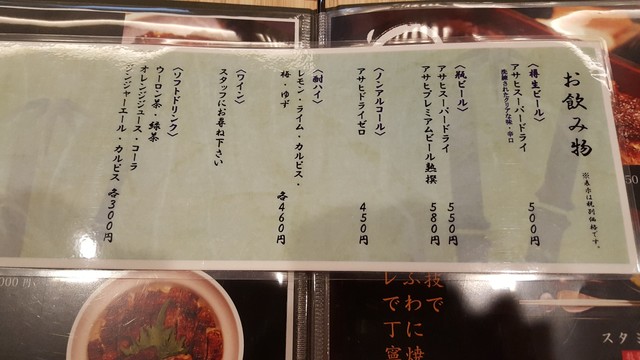 お飲み物
※表示は税別価格です。
〈樽生ビール〉
アサヒスーパードライ 500円
洗練されたクリアな味・辛口
〈瓶ビール〉
アサヒスーパードライ 550円
アサヒプレミアムビール熟撰 580円
〈ノンアルコール〉
アサヒドライゼロ 450円
〈酎ハイ〉
レモン・ライム・カルピス・
梅・ゆず 各460円
〈ワイン〉
スタッフにお尋ね下さい
〈ソフトドリンク〉
ウーロン茶・緑茶
オレンジジュース・コーラ
ジンジャーエール・カルピス 各300円
000円
50
技で
ふわに焼
レで丁寧
スタ